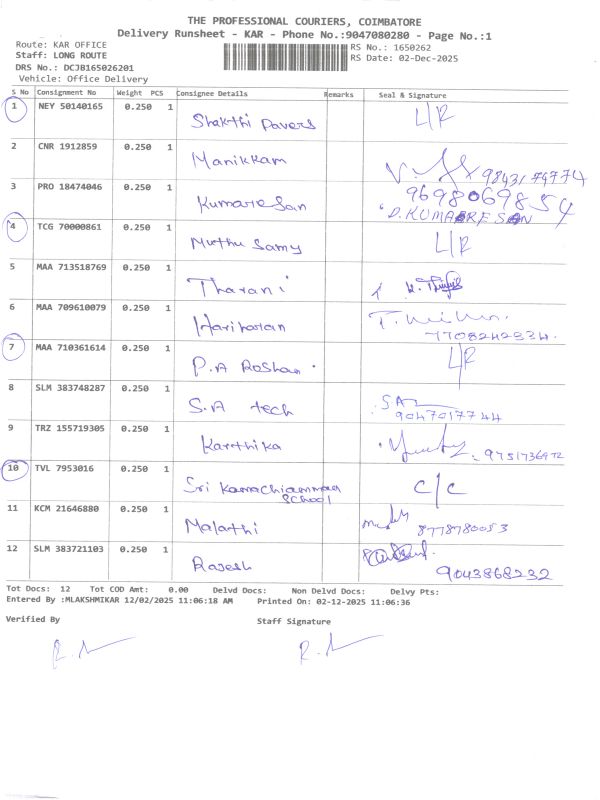 THE PROFESSIONAL COURIERS, COIMBATORE
Delivery Runsheet - KAR - Phone No.:9047080280 - Page No.:1
Route: KAR OFFICE RS No.: 1650262
Staff: LONG ROUTE RS Date: 02-Dec-2025
DRS No.: DCJB165026201
Vehicle: Office Delivery
S No Consignment No Weight PCS Consignee Details Remarks Seal & Signature
1 NEY 50140165 0.250 1 Shakthi Pavers L/R
2 CNR 1912859 0.250 1 Manikkam
3 PRO 18474046 0.250 1 Kumaresan 9698069854
D.KUMARESAN
4 TCG 70000861 0.250 1 Muthu Samy L/R
5 MAA 713518769 0.250 1 Tharani
6 MAA 709610079 0.250 1 Hariharan
7708242934
7 MAA 710361614 0.250 1 P.A Roshan L/R
8 SLM 383748287 0.250 1 S.A tech S.A
9047017744
9 TRZ 155719305 0.250 1 Karthika 9751736972
10 TVL 7953016 0.250 1 Sri Kamachiamman School C/C
11 KCM 21646880 0.250 1 Malathi 8778780053
12 SLM 383721103 0.250 1 Rajesh 9043868232
Tot Docs: 12 Tot COD Amt: 0.00 Delvd Docs: Non Delvd Docs: Delvy Pts:
Entered By :MLAKSHMIKAR 12/02/2025 11:06:18 AM Printed On: 02-12-2025 11:06:36
Verified By Staff Signature